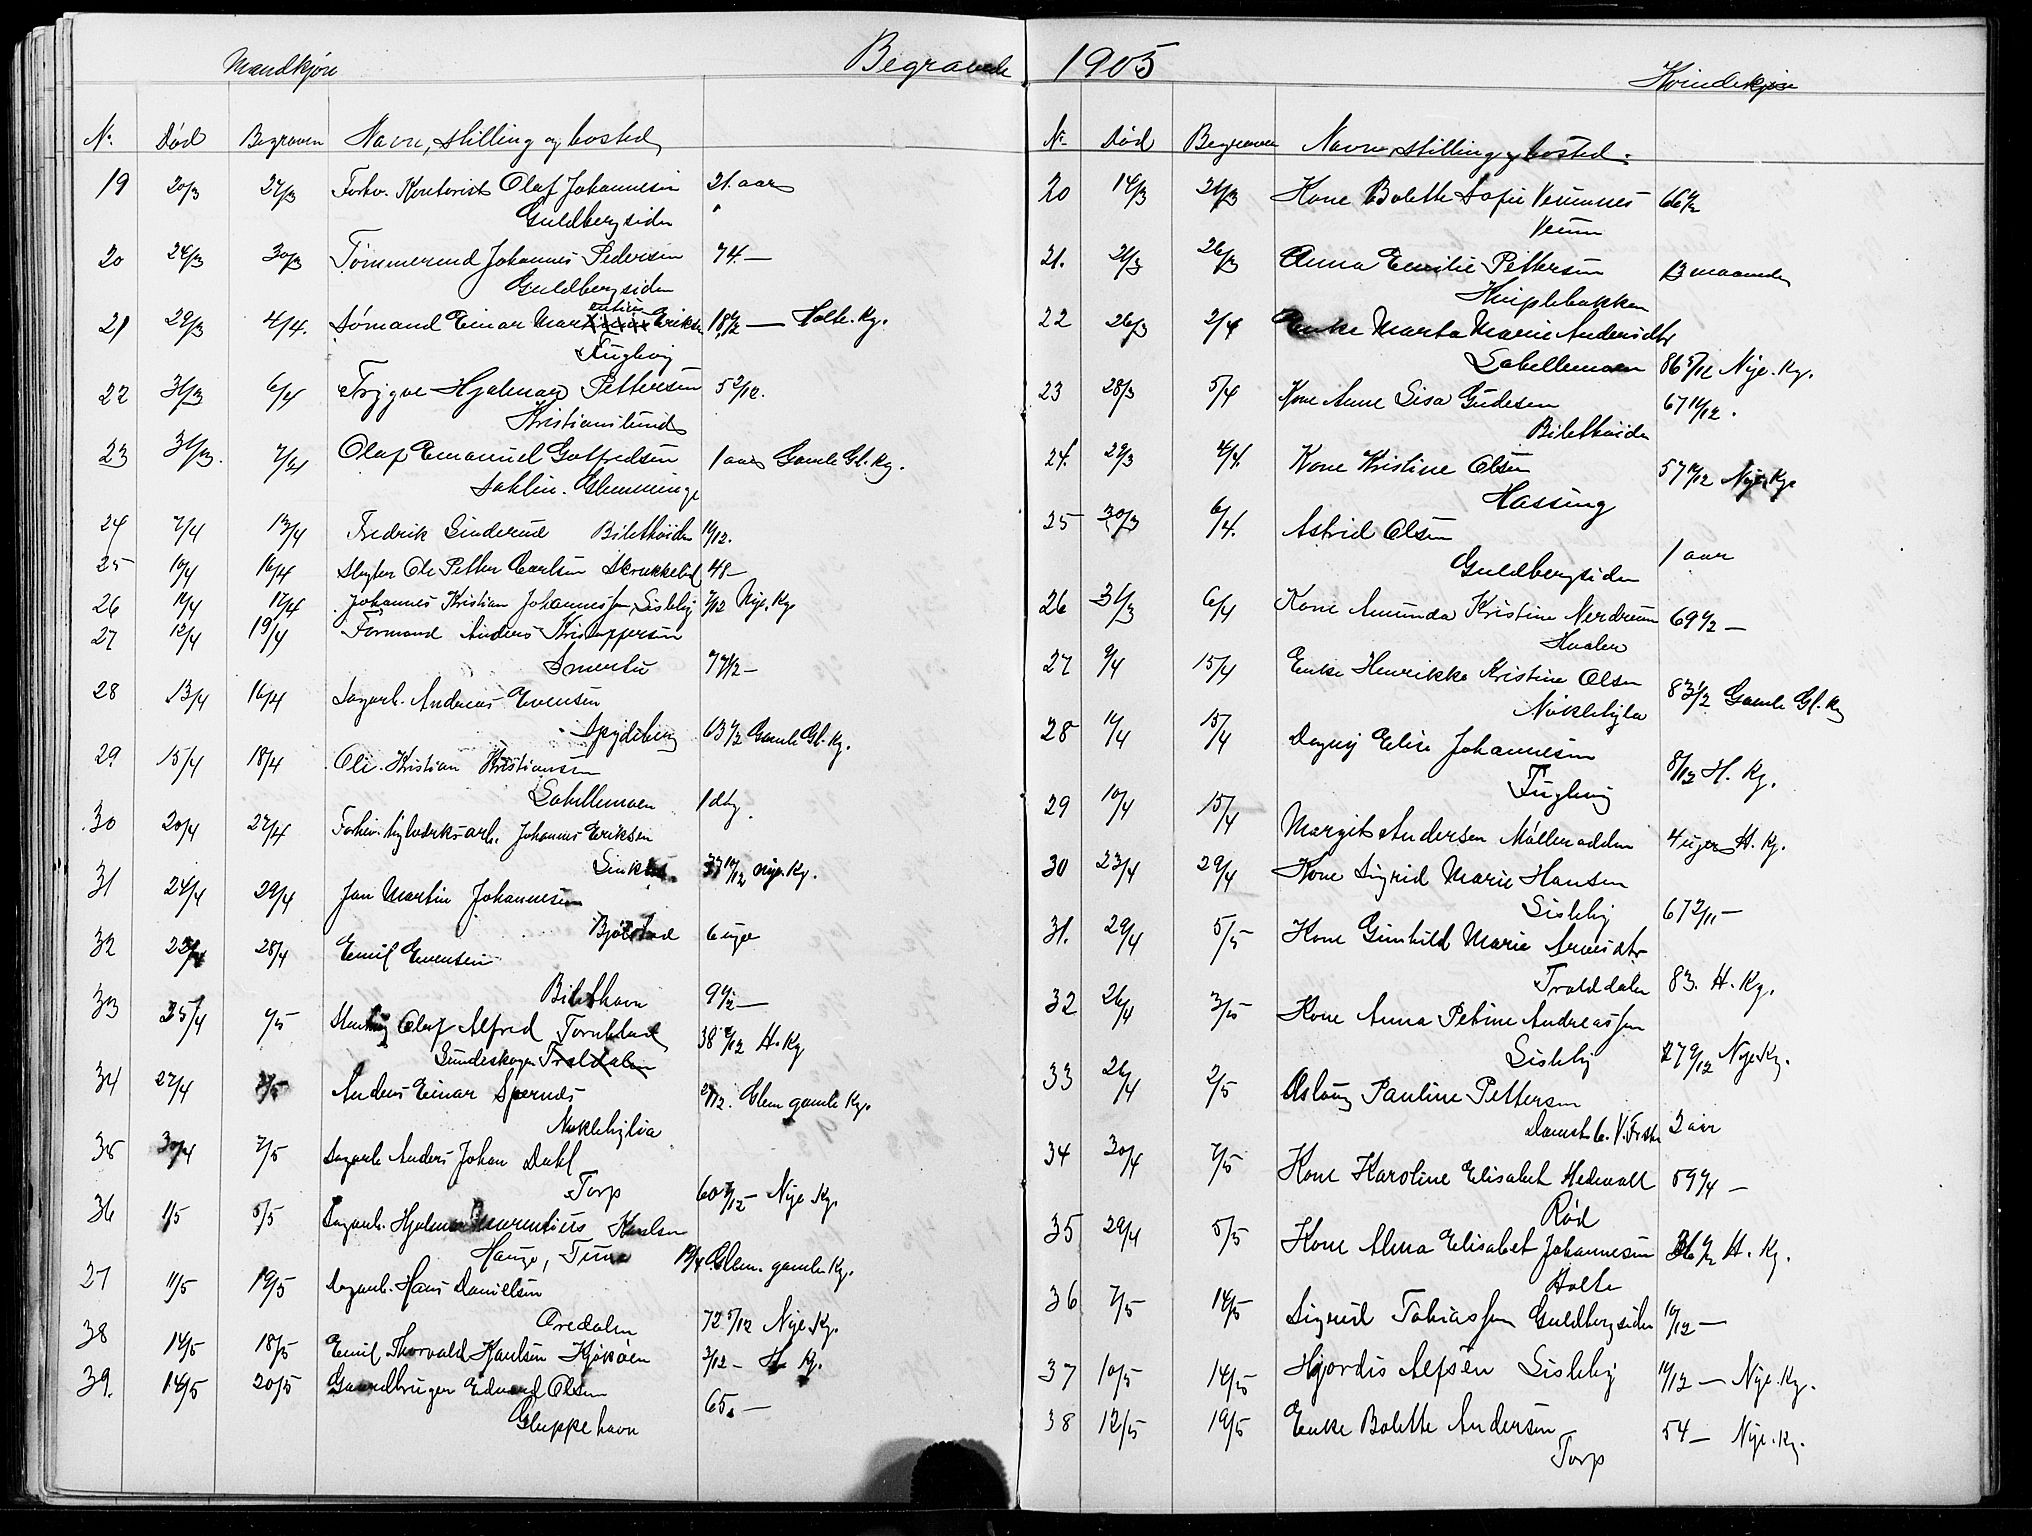 Mandkjøn
Begravede
N:
Død
Begraven
Navn, stilling og bosted
19 20/3 27/3 Forhv. Kontorist Olaf Johannesen 21. aar
Guldbergsiden
20 24/3 30/3 Tømmermd Johannes Pedersen 74 —
Guldbergsiden
21 29/3 4/4. Sømand Einar Eriksen 18 1/2 — Holte. Kg.
Fuglevig
22 31/3 6/4 Trygve Hjalmar Pettersen 5 2/12.
Kristianslund
23 31/3. 7/4 Olaf Emanuel Gotfredsen 1 aar Gamle Gl. Kg.
Dahlin. Glemminge
24 7/4 13/4 Fredrik Binderud Bilethøiden 11/12.
25 10/4 16/4 Ole Petter Carlsen 48 —
26 12/4 17/4 Johannes Kristian Johannessen Lisleby 7/12 Nye. Kg.
27 12/4 19/4 Formand Anders Kristoffersen
Smertu 77 1/2 —
28 13/4 16/4 Sagarb. Andreas Evensen
Spydeberg 63 1/2 Gamle Gl. Kg.
29 15/4 18/4 Ole Kristian Kristiansen
Labellemoen 1 dag
30 20/4 27/4 Forhv. arb. Johannes Eriksen
Nye. Kg.
31 24/4 29/4 Jan Martin Johannesen
Bjølstad 6 uger
32 22/4 28/4 Emil Evensen
Bilethavn 9 1/2 —
33 25/4 1/5 Olaf Alfred Tornblad 38 H. Kg
Bundeskogen Traldalen
34 27/4 2/5 Anders Einar Spernes 2/12. Glem gamle Kg.
Nøklebylia
35 30/4 7/5 Sagarb Anders Johan Dahl
Torp 60 Nye Kg.
36 1/5 5/5 Sagarb. Hjalmar Laurentius Karlsen
Hauge, Tune Glem. gamle Kg.
37 11/5 19/5 Sagarb. Hans Danielsen
Oredalen 72 5/12 Nye. Kg.
38 14/5 18/5 Emil Thorvald Karlsen Kjøkøen 3/12 — H Kg.
39. 14/5 20/5 Gaardbruger Edvard Olsen 65. —
Gluppe havn
1905
Kvindekjøn
N:
Død
Begraven
Navn, stilling og bosted.
20 14/3 21/3 Kone Bolette Sofie Veumnes 66 1/2
Veum
21. 21/3 26/3 Anna Emilie Pettersen 13 maaneder
Kniplebakken
22 26/3 2/4 Enke Marta Marie Andersdtr
Labellemoen 86 5/12 Nye. Kg.
23 28/3 5/4 Kone Anne Lisa Gudesen 67 11/12.
Bilethøiden
24. 29/3 4/4. Kone Kristine Olsen 57 Nye. Kg.
Hassing
25 30/3 6/4. Astrid Olsen
Guldbergsiden 1 aar
26 31/3 6/4 Kone Amunda Kristine Nerdrum 69 1/2 —
Hvaler
27 9/4 15/4 Enke Henrikke Kristine Olsen
Nøklebylia 83 1/2 Gamle Gl. Kg
28 11/4 15/4 Dagny Elise Johannesen
Fuglevig 8/12 H. Kg.
29 10/4 15/4 Margit Andersen Møllerodden 4 uger H. Kg.
30 23/4 29/4 Kone Sigrid Marie Hansen
Lisleby 67 2/11 —
31. 29/4 5/5 Kone Gunhild Marie Arnesdtr
Tralddalen 83. H. Kg.
32 26/4 3/5 Kone Anna Petrine Andreassen
Lisleby 27 9/12 Nye Kg.
33 26/4 2/5 Aslaug Pauline Pettersen
3 aar
34 30/4 7/5 Kone Karoline Elisabet Hedevall 59 1/4 —
Rød
35 29/4 5/5 Kone Alma Elisabet Johannesen 36 1/2 H. Kg.
Holte
36 7/5 14/5 Sigrid Tobiassen Guldbergsiden 10/12 —
37 10/5 14/5 Hjordis Alfsen Lisleby 11/12 — Nye. Kg.
38 12/5 19/5 Enke Bolette Andersen 54 — Nye. Kg.
Torp